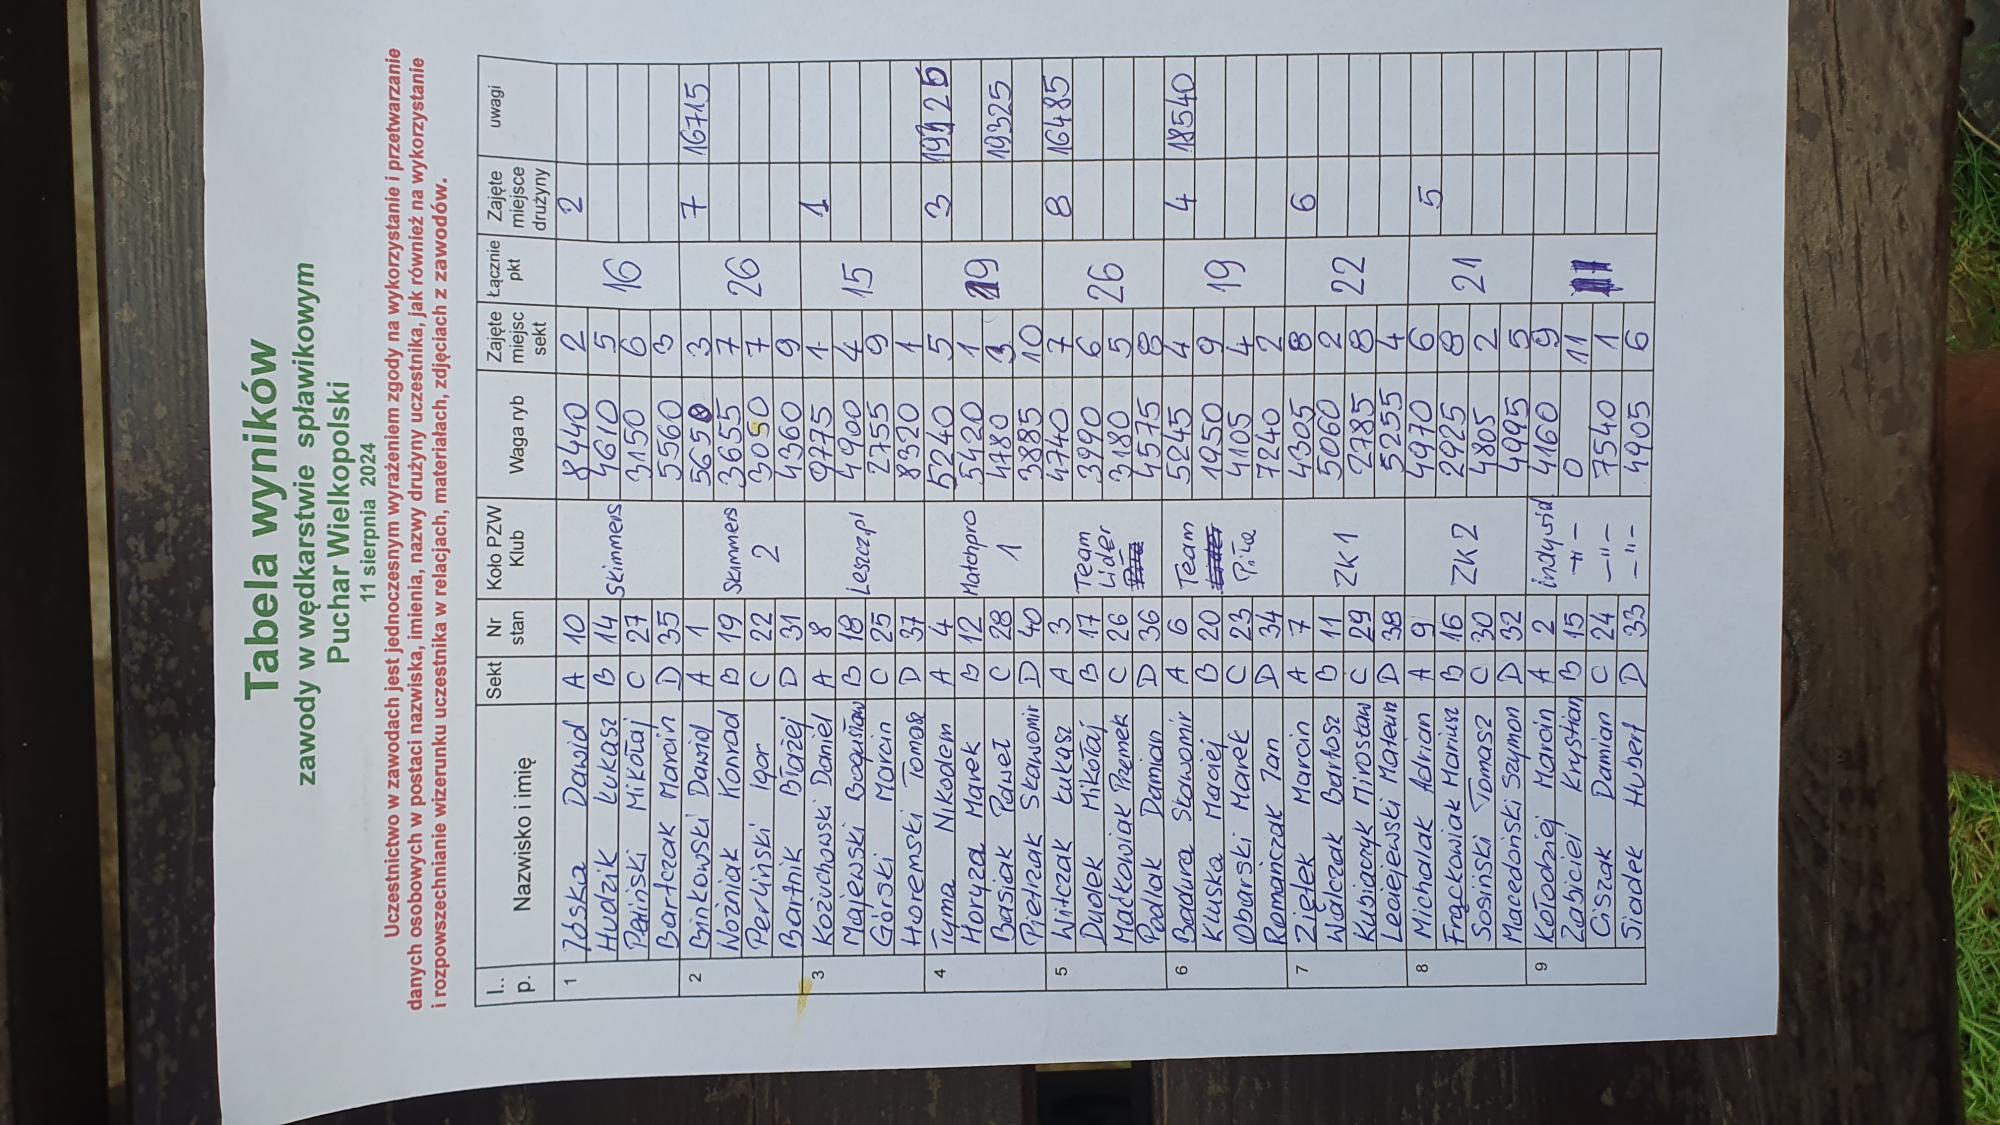 Tabela wyników
zawody w wędkarstwie spławikowym
Puchar Wielkopolski
11 sierpnia 2024
Uczestnictwo w zawodach jest jednoczesnym wyrażeniem zgody na wykorzystanie i przetwarzanie
danych osobowych w postaci nazwiska, imienia, nazwy drużyny uczestnika, jak również na wykorzystanie
i rozpowszechnianie wizerunku uczestnika w relacjach, materiałach, zdjęciach z zawodów.
l.. p. Nazwisko i imię Sekt Nr stan Koło PZW Klub Waga ryb Zajęte miejsc sekt Łącznie pkt Zajęte miejsce drużyny uwagi
1 Jóska Dawid A 10 Skimmers 8440 2 16 2
Hudzik Łukasz B 14 4610 5
Peliński Mikołaj C 27 3150 6
Bartczak Marcin D 35 5560 3
2 Binkowski Dawid A 1 Skimmers 2 5650 3 26 7 16715
Woźniak Konrad B 19 3655 7
Perliński Igor C 22 3050 7
Bartnik Błażej D 31 4360 9
3 Kożuchowski Daniel A 8 Leszczpl 9775 1 15 1
Majewski Bogusław B 18 4900 4
Górski Marcin C 25 2755 9
Horemski Tomasz D 37 8320 1
4 Tyma Nikodem A 4 Matchpro 1 5240 5 19 3
Horyza Marek B 12 5420 1
Basiak Paweł C 28 4780 3 19325
Pietrzak Sławomir D 40 3885 10
5 Witczak Łukasz A 3 Team Lider 4740 7 26 8 16485
Dudek Mikołaj B 17 3990 6
Maćkowiak Przemek C 26 3180 5
Podlak Damian D 36 4575 8
6 Badura Sławomir A 6 Team Piła 5245 4 19 4 18540
Kluska Maciej B 20 1950 9
Obarski Marek C 23 4105 4
Romańczak Jan D 34 7240 2
7 Ziętek Marcin A 7 ZK1 4305 8 22 6
Walczak Bartosz B 11 5060 2
Kubiaczyk Mirosław C 29 2785 8
Leciejewski Mateusz D 38 5255 4
8 Michalak Adrian A 9 ZK2 4970 6 21 5
Frąckowiak Mariusz B 16 2925 8
Sosiński Tomasz C 30 4805 2
Macedoński Szymon D 32 4995 5
9 Kołodziej Marcin A 2 indywid 4160 9
Zabiciel Krystian B 15 -"- 0 11
Ciszak Damian C 24 -"- 7540 1
Siadek Hubert D 33 -"- 4905 6